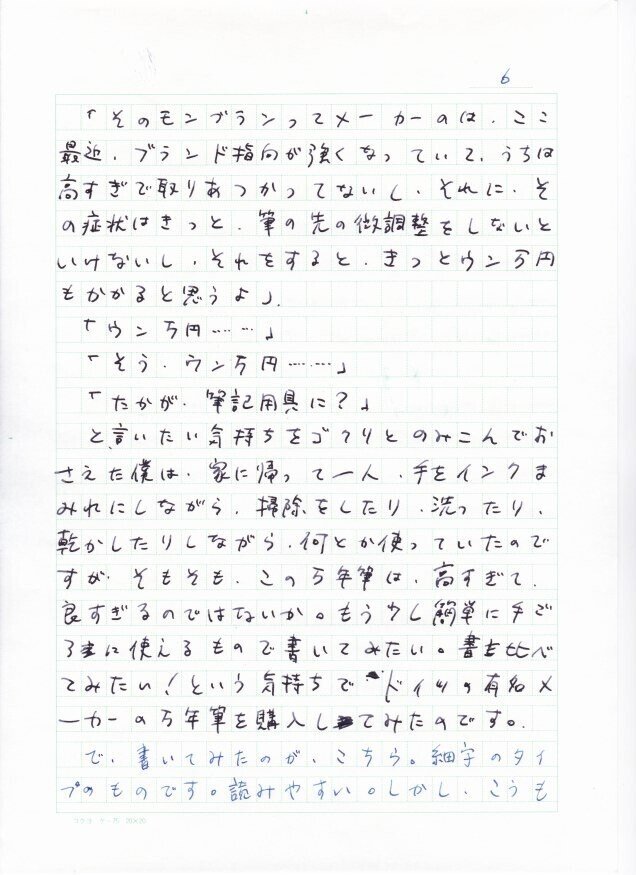 6
「そのモンブランってメーカーのは、ここ
最近、ブランド指向が強くなっていて、うちは
高すぎで取りあつかってないし、それに、そ
の症状はきっと、筆の先の微調整をしないと
いけないし、それをすると、きっとウン万円
もかかると思うよ」
「ウン万円……」
「そう、ウン万円……」
「たかが、筆記用具に？」
と言いたい気持ちをゴクリとのみこんでお
さえた僕は、家に帰って一人、手をインクま
みれにしながら、掃除をしたり、洗ったり、
乾かしたりしながら、何とか使っていたので
すが、そもそも、この万年筆は、高すぎて、
良すぎるのではないか。もう少し簡単に手ご
ろに使えるもので書いてみたい。書き比べ
てみたい！という気持ちで、ドイツの有名メ
ーカーの万年筆を購入してみたのです。
で、書いてみたのが、こちら。細字のタイ
プのものです。読みやすい。しかし、こうも
コクヨ ケ-75 20×20